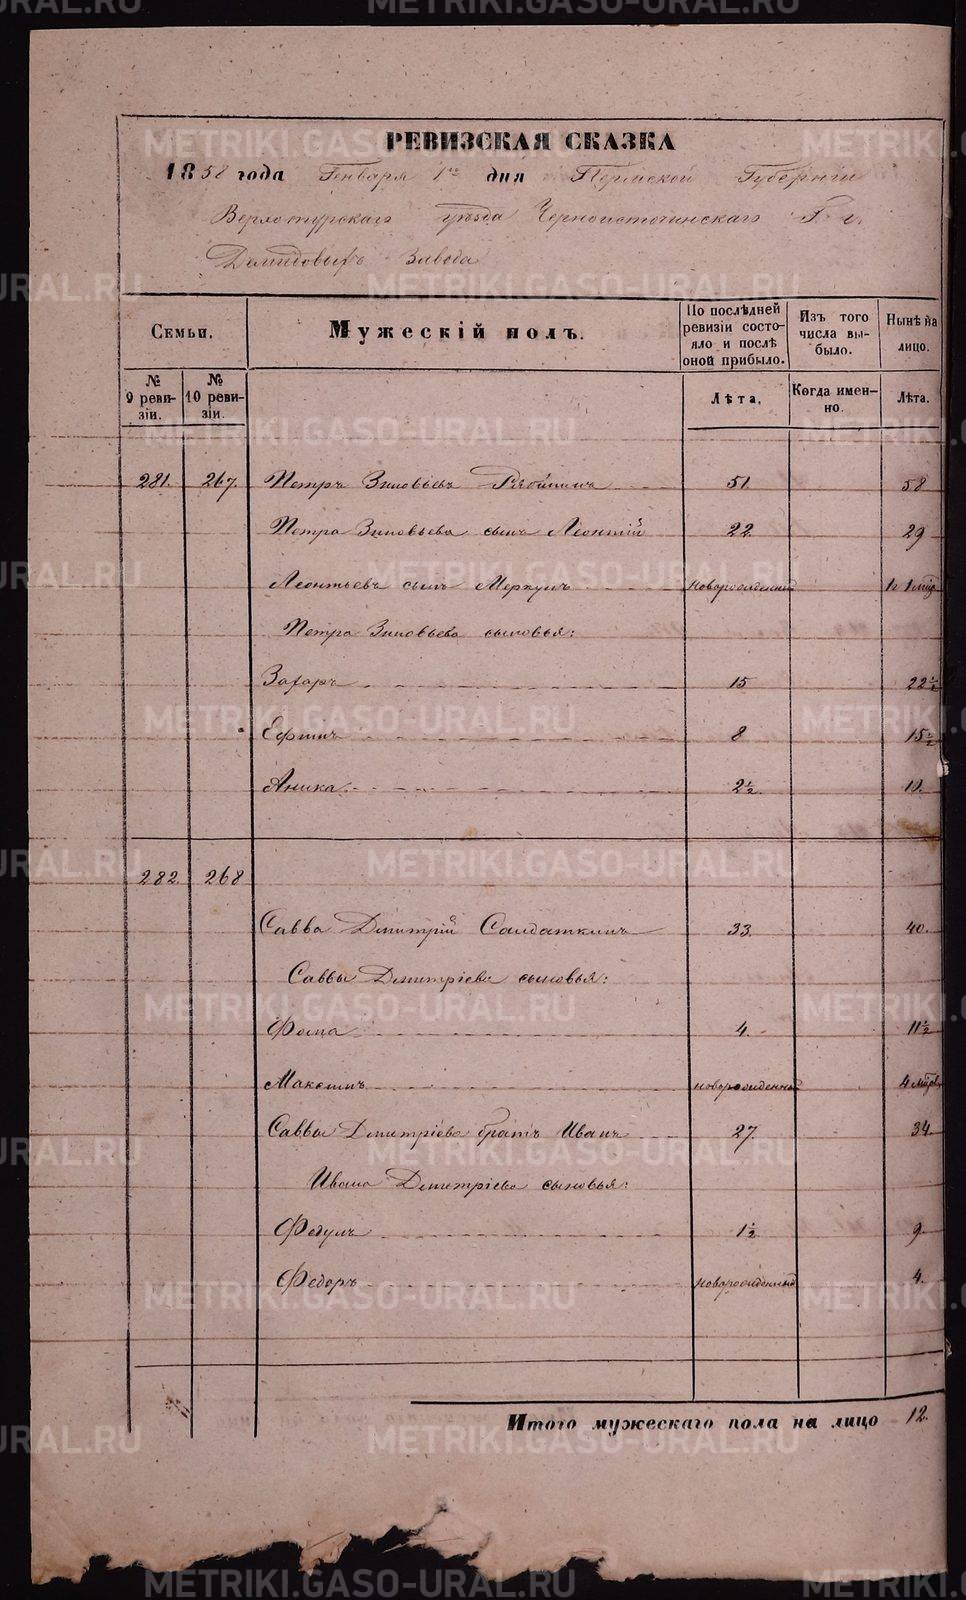 РЕВИЗСКАЯ СКАЗКА
1858 года Генваря 1го дня Пермской Губернiи
Верхотурскаго уѣзда Черноисточинскаго Г. г.
Демидовыхъ Завода
Семьи. Мужескiй полъ. По послѣдней ревизiи состояло и послѣ оной прибыло. Изъ того числа выбыло. Нынѣ на лицо.
№ 9 ревизiи. № 10 ревизiи. Лѣта. Когда именно. Лѣта.
281. 267. Петръ Зиновьевъ Рябининъ 51 58
Петра Зиновьева сынъ Леонтiй 22 29
Леонтьевъ сынъ Меркулъ новорожденный
Петра Зиновьева сыновья:
Захаръ 15 22½
Ефимъ 8 15½
Аника 2½ 10.
282. 268
Савва Дмитрiй Солдаткинъ 33. 40.
Саввы Дмитрiева сыновья:
Фома 4. 11½
Максимъ новорожденный 4
Саввы Дмитрiева братъ Иванъ 27. 34.
Ивана Дмитрiева сыновья:
Федулъ 1½ 9
Федоръ новорожденный 4.
Итого мужескаго пола на лицо 12.
METRIKI.GASO-URAL.RU